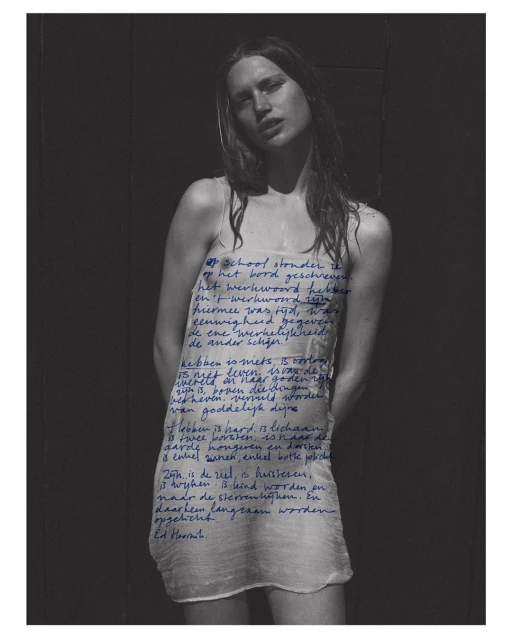 op school stonden ze
op het bord geschreven
het werkwoord hebben
en 't werkwoord zijn
hiermee was tijd, was
eeuwigheid gegeven
de ene werkelijkheid
de ander schijn.
Hebben is niets, is oorlog
is niet leven. is van de
wereld en naar goden zijn
zijn is, boven die dingen
verheven. vervuld worden
van goddelijk pijn
Hebben is hard. is lichaam
is twee borsten. is naar de
aarde hongeren en dorsten
is enkel zinnen, enkel botte plicht
Zijn is de ziel, is luisteren,
is wijken. is kind worden en
naar de sterren kijken. En
daarheen langzaam worden
opgelicht.
Ed Hoornik.